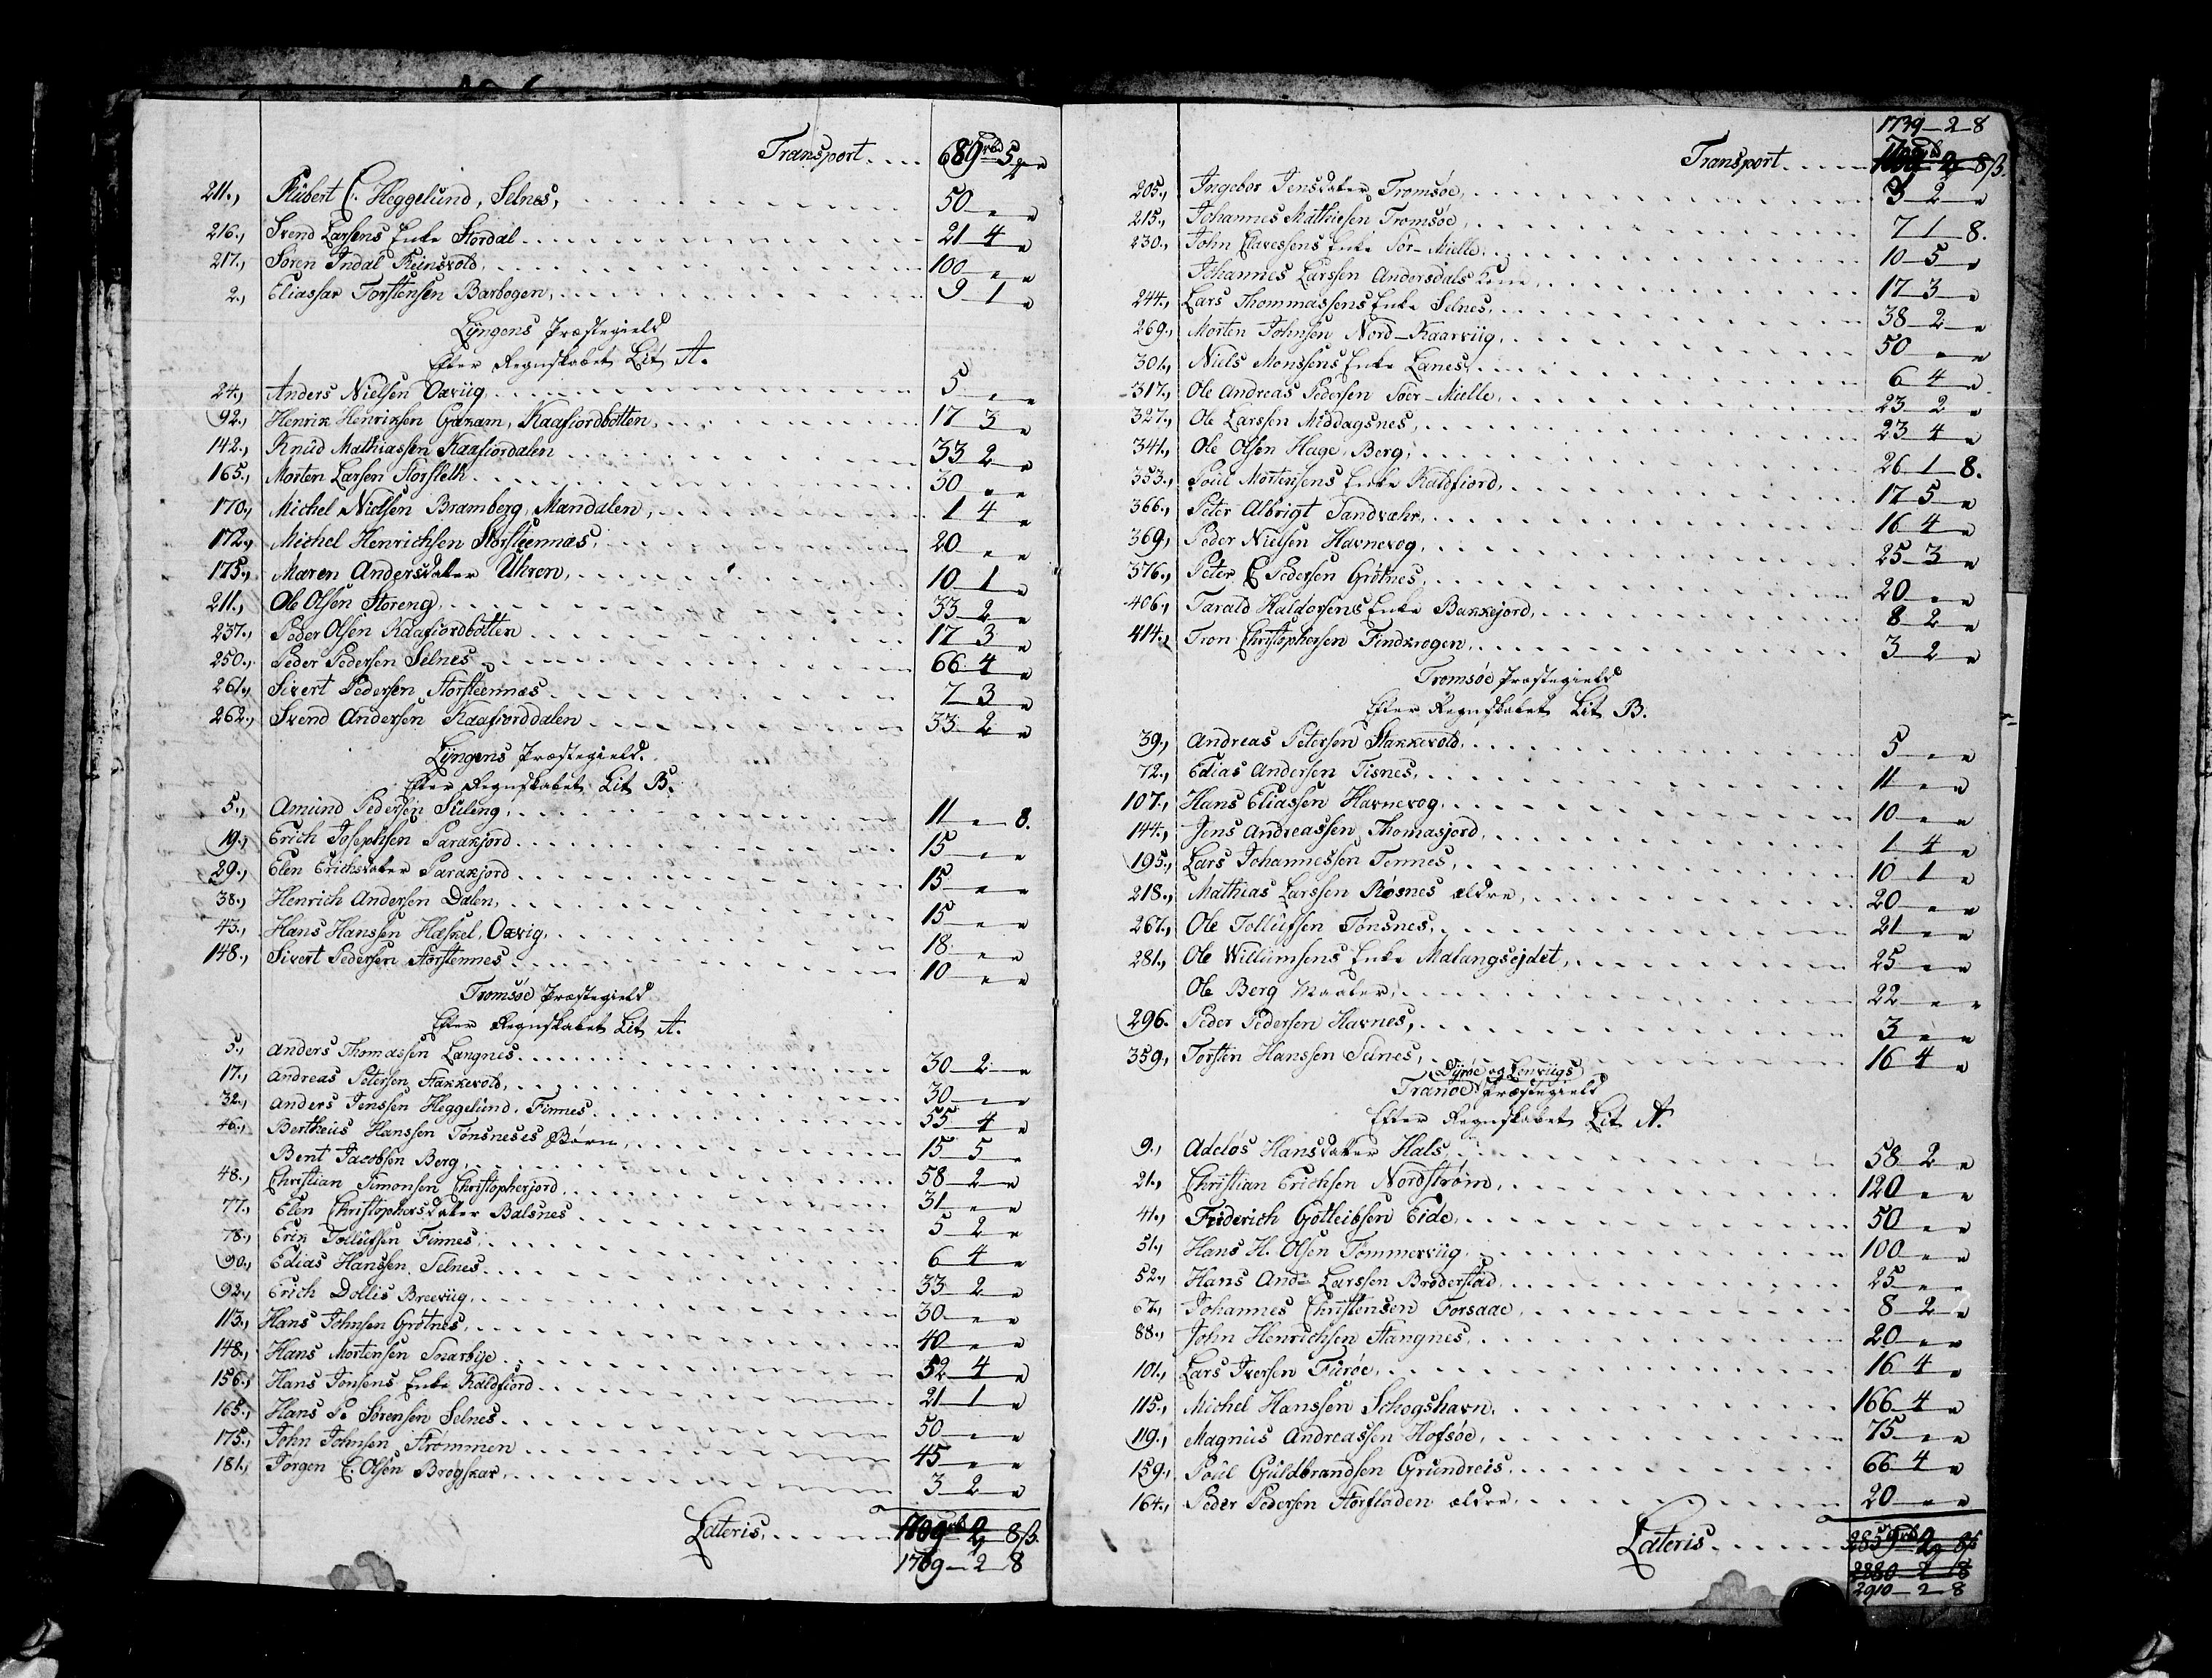 Transport .... 689 rbd 5 "
211., Rubert C. Heggelund, Selnes, 50 " "
216., Svend Larsens Enke Stordal 21 4 "
217., Søren Indal Reinsvold, 100 " "
2., Eliassar Torstensen Barbogen, 9 1 "
Lyngens Præstegield
Efter Regnskabet Lit A.
24., Anders Nielsen Oxviig, 5 " "
92., Henrik Henriksen Gakam, Kaafiordbotten, 17 3 "
142., Knud Mathiassen Kaafiordalen 33 2 "
165., Morten Larsen Storsleth 30 " "
170., Michel Nielsen Bramberg, Mandalen, 1 4 "
172., Michel Henrichsen Storsteennæs, 20 " "
175., Maren Andersdater Uhren, 10 1 "
211., Ole Olsen Storeng, 33 2 "
237., Peder Olsen Kaafiordbotten 17 3 "
250., Peder Pedersen Selnes 66 4 "
261., Sivert Pedersen Storsteennæs 7 3 "
262., Svend Andersen Kaafiorddalen 33 2 "
Lyngens Præstegield.
Efter Regnskabet Lit B.
5., Amund Pedersen Suleng, 11 " 8.
19., Erich Josephsen Parakjord 15 " "
29., Elen Erichsdater Parakjord 15 " "
38., Henrich Andersen Dalen, 15 " "
43., Hans Hanssen Hæskel, Oxvig, 18 " "
148., Sivert Pedersen Storstennes 10 " "
Tromsøe Præstegield
Efter Regnskabet Lit A.
5., Anders Thomassen Langnes 30 2 "
17., Andreas Petersen Stakkevold, 30 " "
32., Anders Jenssen Heggelund, Finnes 55 4 "
46., Bertheus Hanssen Tønsneses Børn, 15 5 "
Bent Jacobsen Berg, 58 2 "
48., Christian Simonsen Christopherjord 31 " "
77., Elen Christophersdater Balsnes 5 2 "
78., Erik Tollufsen Finnes, 6 4 "
90., Edias Hanssen Selnes 33 2 "
92., Erich Dollis Breeviig, 30 " "
113., Hans Johnsen Grøtnes, 40 " "
148., Hans Mortensen Snarbye 52 4 "
156., Hans Jonsens Enke Kaldfiord 21 1 "
165., Hans P. Sørensen Selnes 50 " "
175., John Johnsen Strømmen 45 " "
181., Jørgen E. Olsen Brogskar, 3 2 "
Lateris, 1709 rbd 2 8 ß.
1769 — 2 8
1739 — 2 — 8
Transport 2 8 ß.
205., Ingebor Jensdater Tromsøe, 3 2 "
215., Johannes Mathiesen Tromsøe, 7 1 8.
230., John Clavessens Enke Sør-Mielle, 10 5 "
Johannes Larssen Andersdals Kone 17 3 "
244., Lars Thommassens Enke Selnes, 38 2 "
269., Morten Johnsen Nord-Kaarviig, 50 " "
301., Niels Monssens Enke Lanes, 6 4 "
317., Ole Andreas Pedersen Søer-Mielle, 23 2 "
327., Ole Larssen Middagsnes, 23 4 "
341., Ole Olsen Hage, Berg, 26 1 8.
353., Poul Mortensens Enke Kaldfiord, 17 5 "
366., Peter Albrigt Sandvæhr, 16 4 "
369., Peder Nielsen Havnevog, 25 3 "
376., Peter E Pedersen Grøtnes, 20 " "
406., Tarald Haldorsens Enke Bakkejord, 8 2 "
414., Tron Christophersen Findkrogen, 3 2 "
Tromsøe Præstegield
Efter Regnskabet Lit B.
39., Andreas Petersen Stakkevold, 5 " "
72., Edias Andersen Tisnes, 11 " "
107., Hans Eliassen Havnevog, 10 " "
144., Jens Andreassen Thomasjord, 1 4 "
195., Lars Johannessen Tennes, 10 1 "
218., Mathias Larssen Røsnes ældre, 20 " "
267., Ole Tollufsen Tønsnes, 21 " "
281., Ole Willumsens Enke Malangsejdet, 25 " "
Ole Berg Maaler, 22 " "
296. Peder Pedersen Havnes, 3 " "
359., Torsten Hanssen Selnes, 16 4 "
Dyrøe og Lenviigs
Tranøe Præstegield
Efter Regnskabet Lit A.
9., Adeløs Hansdater Hals, 58 2 "
21., Christian Erichsen Nordstrøm, 120 " "
41., Friderich Gotleibsen Eide, 50 " "
51., Hans H. Olsen Tømmerviig, 100 " "
52., Hans And: Larssen Brøderstad, 25 " "
67., Johannes Christensen Forsaae, 8 2 "
88., John Henrichsen Stangnes, 20 " "
101., Lars Iversen Furøe, 16 4 "
115., Michel Hanssen Schogshavn, 166 4 "
119., Magnus Andreassen Hofsøe, 75 " "
159., Poul Guldbrandsen Grundreis, 66 4 "
164., Peder Pedersen Storfladen ældre, 20 " "
Lateris 2859 rbd 2 8 ß
2880 2 8
2910 — 2 — 8